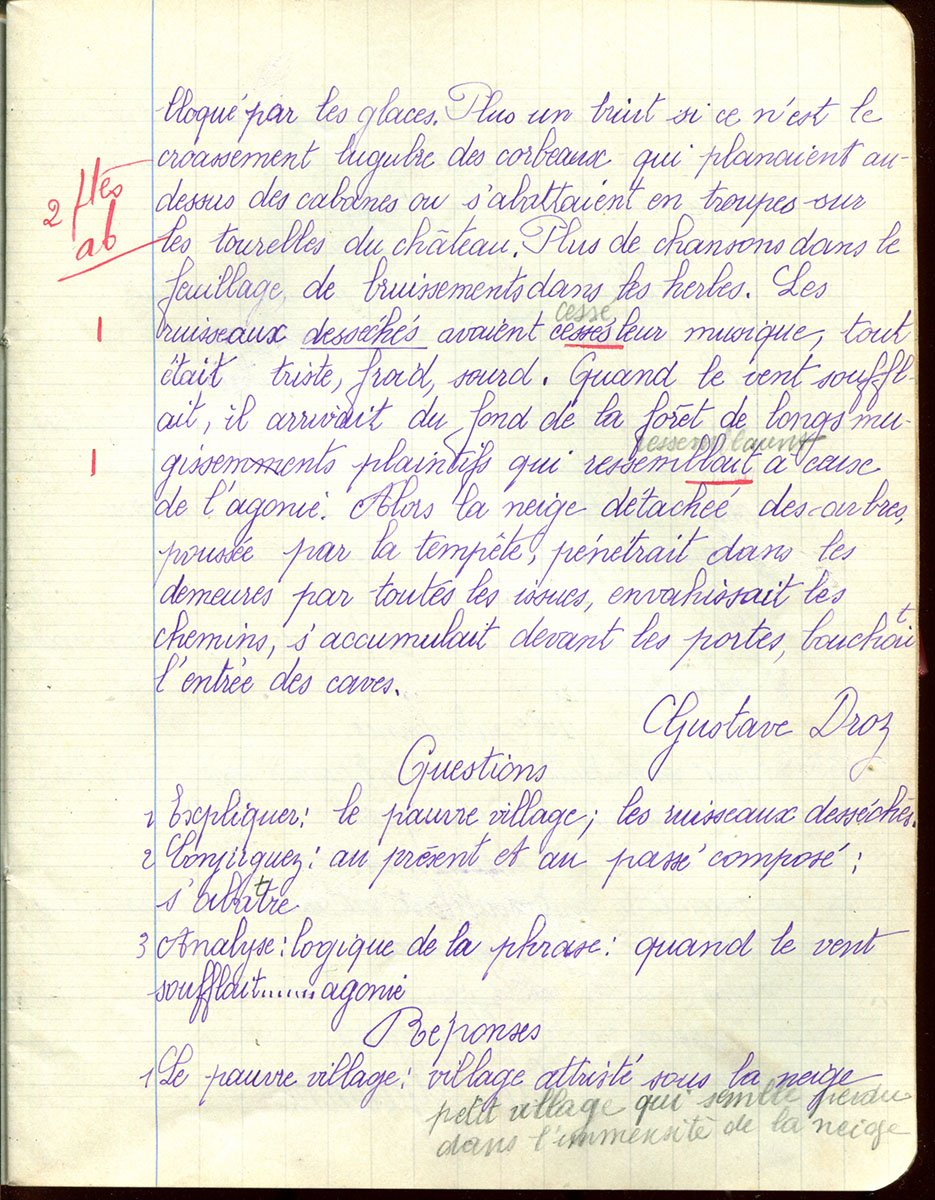 bloqué par les glaces. Plus un bruit si ce n'est le
croassement lugubre des corbeaux qui planaient au-
2 ftes
dessus des cabanes ou s'abattaient en troupes sur
ab
les tourelles du château. Plus de chansons dans le
feuillage, de bruissements dans les herbes. Les
cessé
1 ruisseaux desséchés avaient cessés leur musique, tout
était triste, froid, sourd. Quand le vent souffl-
ait, il arrivait du fond de la forêt de longs mu-
1 gissements plaintifs qui ressemblait à ceux
de l'agonie. Alors la neige détachée des arbres,
poussée par la tempête, pénétrait dans les
demeures par toutes les issues, envahissait les
chemins, s'accumulait devant les portes, bouchait
l'entrée des caves.
Gustave Droz
Questions
1 Expliquer: le pauvre village; les ruisseaux desséchés.
2 Conjuguez: au présent et au passé composé:
s'abattre
3 Analyse: logique de la phrase: quand le vent
soufflait........agonie
Réponses
1 Le pauvre village: village attristé sous la neige
petit village qui semble perdu
dans l'immensité de la neige